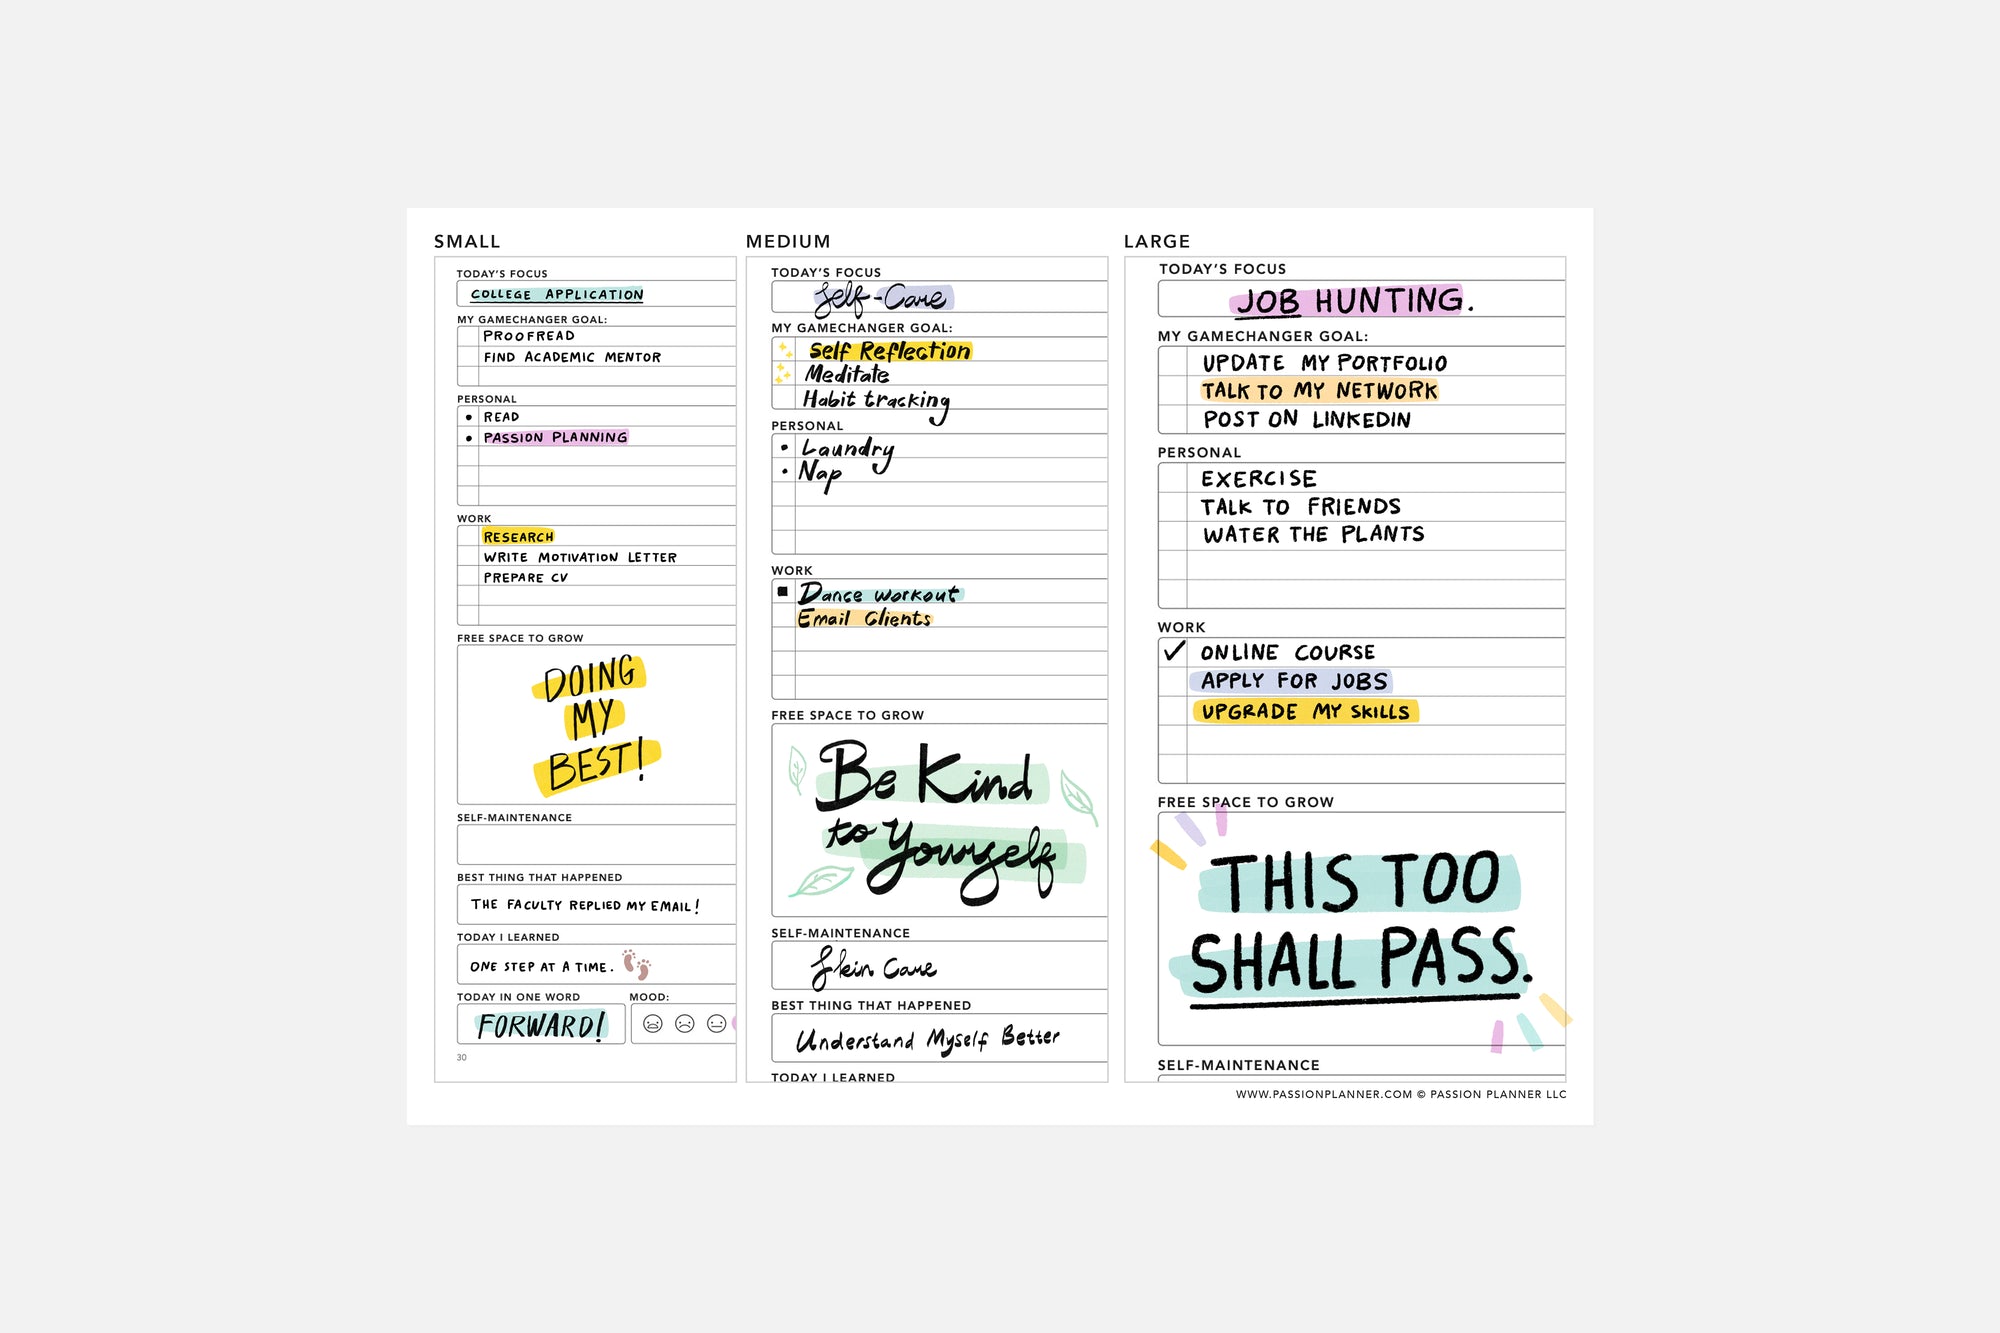 SMALL
TODAY'S FOCUS
COLLEGE APPLICATION
MY GAMECHANGER GOAL:
PROOFREAD
FIND ACADEMIC MENTOR
PERSONAL
• READ
• PASSION PLANNING
WORK
RESEARCH
WRITE MOTIVATION LETTER
PREPARE CV
FREE SPACE TO GROW
DOING
MY
BEST!
SELF-MAINTENANCE
BEST THING THAT HAPPENED
THE FACULTY REPLIED MY EMAIL!
TODAY I LEARNED
ONE STEP AT A TIME.
TODAY IN ONE WORD MOOD:
FORWARD!
30
MEDIUM
TODAY'S FOCUS
Self-Care
MY GAMECHANGER GOAL:
Self Reflection
Meditate
Habit tracking
PERSONAL
• Laundry
• Nap
WORK
Dance workout
Email Clients
FREE SPACE TO GROW
Be Kind
to Yourself
SELF-MAINTENANCE
Skin Care
BEST THING THAT HAPPENED
Understand Myself Better
TODAY I LEARNED
LARGE
TODAY'S FOCUS
JOB HUNTING.
MY GAMECHANGER GOAL:
UPDATE MY PORTFOLIO
TALK TO MY NETWORK
POST ON LINKEDIN
PERSONAL
EXERCISE
TALK TO FRIENDS
WATER THE PLANTS
WORK
✓ ONLINE COURSE
APPLY FOR JOBS
UPGRADE MY SKILLS
FREE SPACE TO GROW
THIS TOO
SHALL PASS.
SELF-MAINTENANCE
WWW.PASSIONPLANNER.COM © PASSION PLANNER LLC